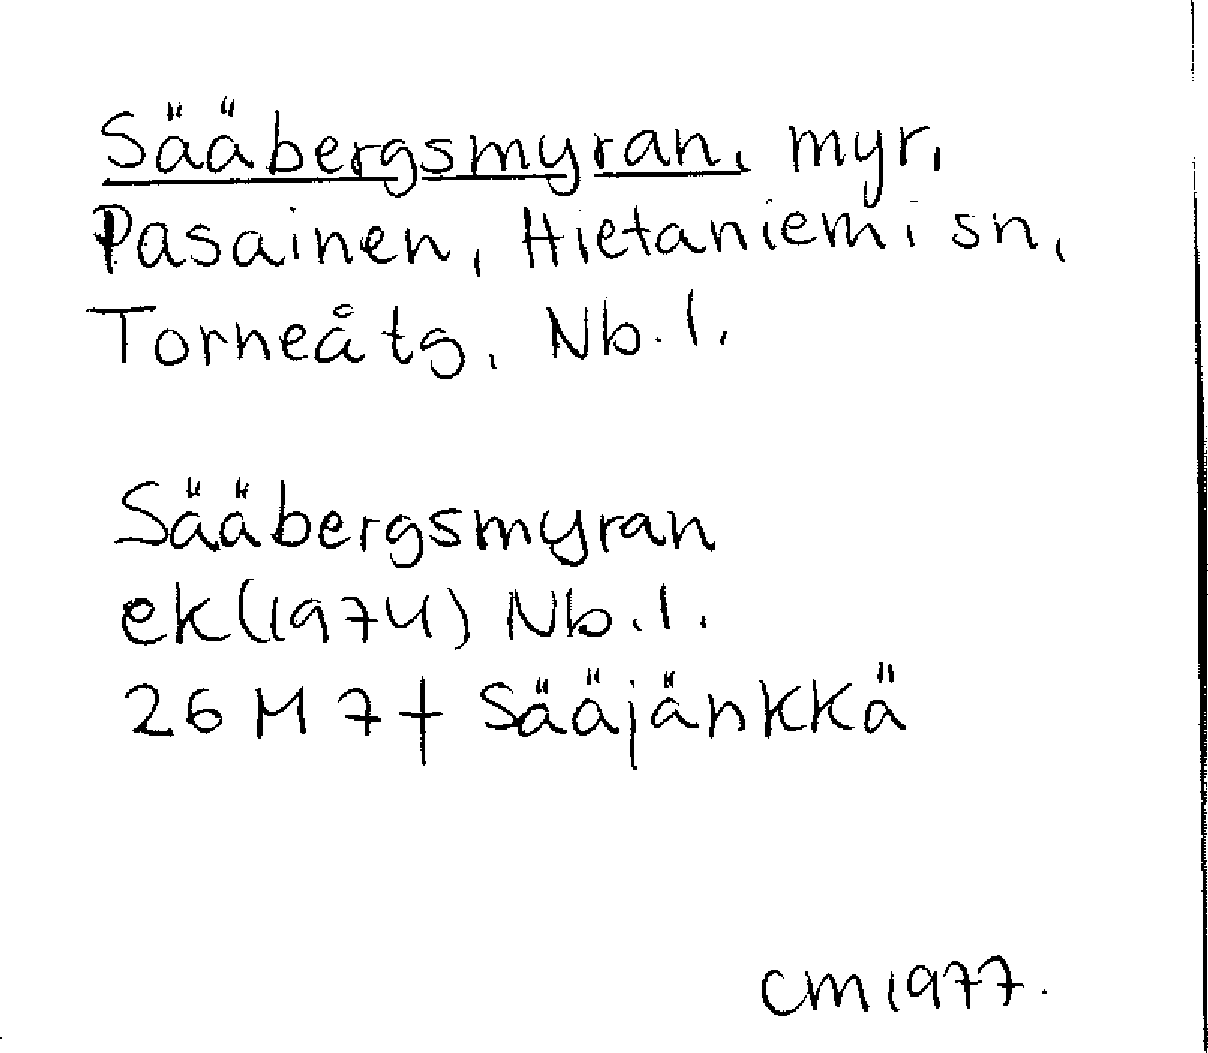 Sääbergsmyran, myr,
Pasainen, Hietaniemi sn,
Torneå tg, Nb. l.
Sääbergsmyran
ek (1974) Nb. l.
26 M 7 + Sääjänkkä
CM 1977.